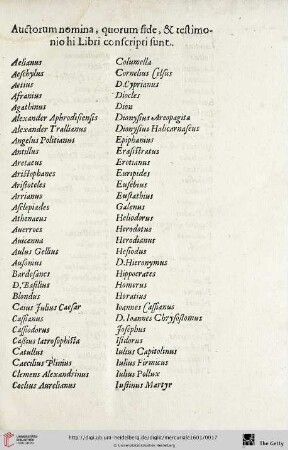 Auctorum nomina, quorum fide, & testimo-
nio hi Libri conscripti sunt.
Aelianus
Aeschylus
Aetius
Afranius
Agathinus
Alexander Aphrodisiensis
Alexander Trallianus
Angelus Politianus
Antillus
Aretaeus
Aristophanes
Aristoteles
Arrianus
Asclepiades
Athenaeus
Averroes
Auicenna
Aulus Gellius
Ausonius
Bardesanes
D. Basilius
Blondus
Caius Julius Caesar
Cassianus
Cassiodorus
Cassius Iatrosophista
Catullus
Caecilius Plinius
Clemens Alexandrinus
Coelius Aurelianus
Columella
Cornelius Celsus
D. Cyprianus
Diocles
Dion
Dionysius Areopagita
Dionysius Halicarnaseus
Epiphanius
Erasistratus
Erotianus
Euripides
Eusebius
Eustathius
Galenus
Heliodorus
Herodotus
Herodianus
Hesiodus
D. Hieronymus
Hippocrates
Homerus
Horatius
Ioannes Cassianus
D. Ioannes Chrysostomus
Josephus
Isidorus
Iulius Capitolinus
Iulius Firmicus
Iulius Pollux
Iustinus Martyr
http://digi.ub.uni-heidelberg.de/diglit/mercuriale1601/0017
© Universitätsbibliothek Heidelberg
The Getty